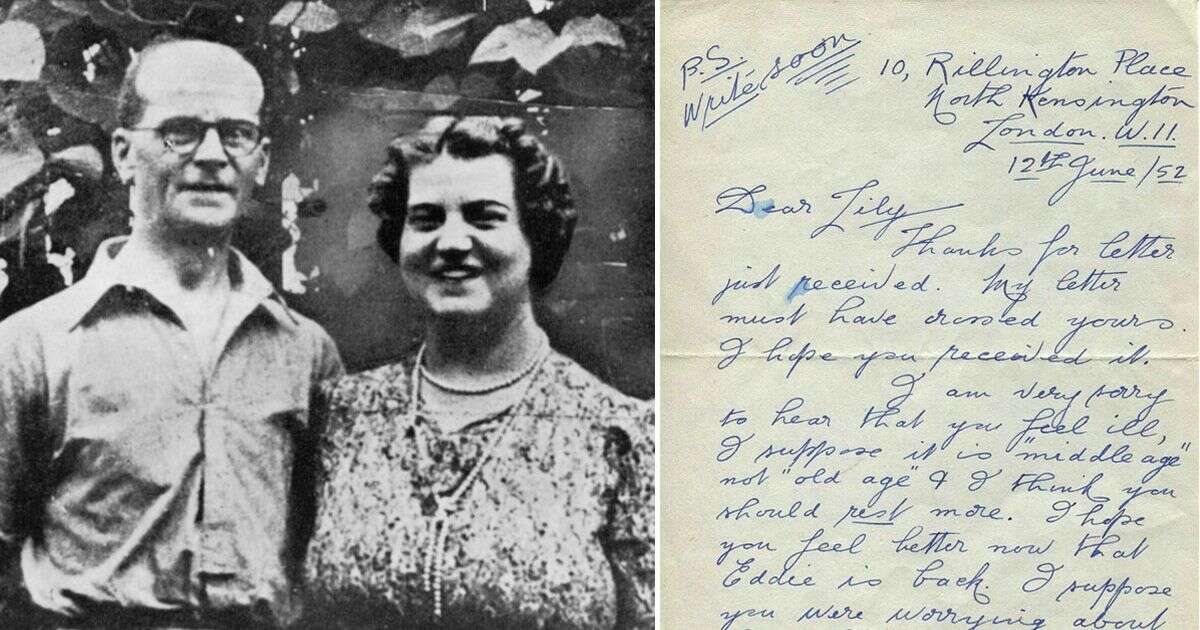 P.S.
Write soon
10, Rillington Place
North Kensington
London. W.11.
12th June/52
Dear Lily
Thanks for letter
just received. My letter
must have crossed yours.
I hope you received it.
I am very sorry
to hear that you feel ill,
I suppose it is "middle age"
not "old age" & I think you
should rest more. I hope
you feel better now that
Eddie is back. I suppose
you were worrying about